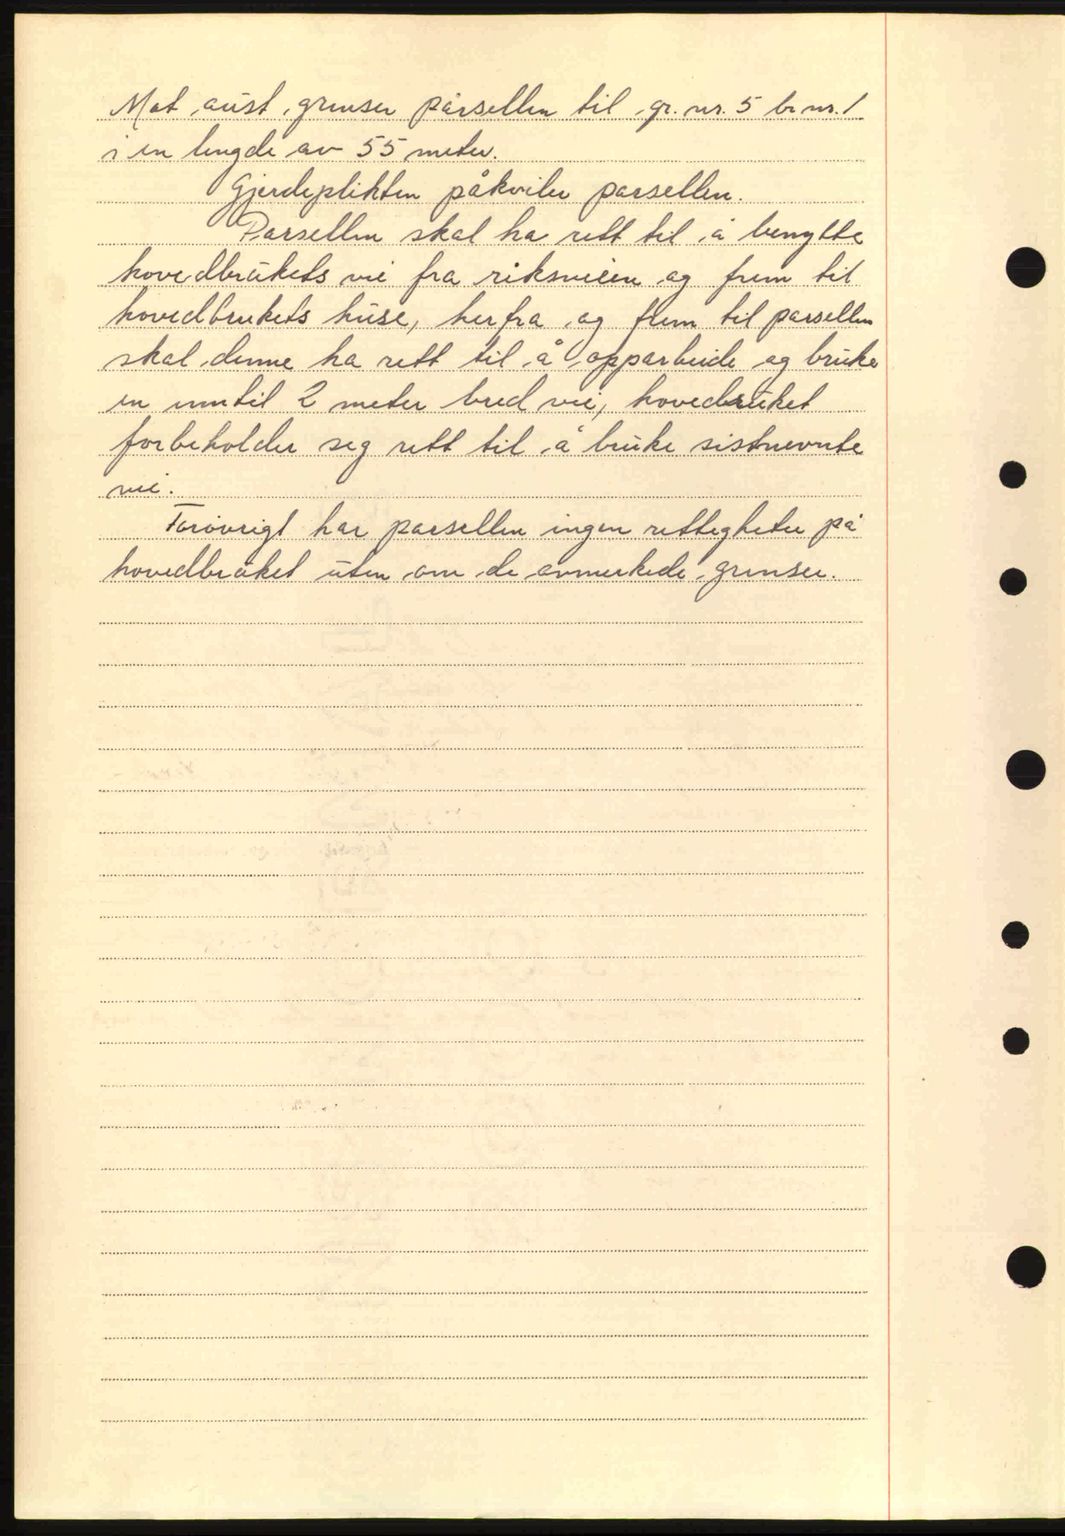 Mot aust grenser parsellen til gr. nr. 5 br. nr. 1
i en lengde av 55 meter.
Gjerdeplikten påkviler parsellen.
Parsellen skal ha rett til å benytte
hovedbrukets vei fra riksveien og frem til
hovedbrukets huse, herfra og frem til parsellen
skal denne ha rett til å opparbeide og bruke
en inntil 2 meter bred vei, hovedbruket
forbeholder seg rett til å bruke sistnevnte
vei.
Forøvrigt har parsellen ingen rettigheter på
hovedbruket uten om de avmerkede grenser.